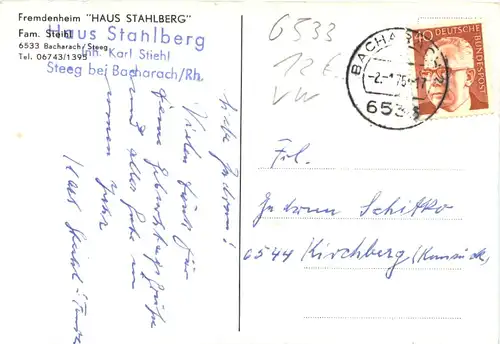 Fremdenheim "HAUS STAHLBERG"
Fam. Stiehl
6533 Bacharach/Steeg
Tel. 06743/1395
Haus Stahlberg
Inh. Karl Stiehl
Steeg bei Bacharach/Rh.
6533
12 €
VW
BACHARACH
-2.-1.75-17
6533
40 DEUTSCHE BUNDESPOST
Liebe Gudrun!
Vielen Dank für
Deine Geburtstagsgrüße
und alles Gute im
neuen Jahr
Karl Stiehl u.
Frl.
Gudrun Schitko
6544 Kirchberg (Hunsrück)